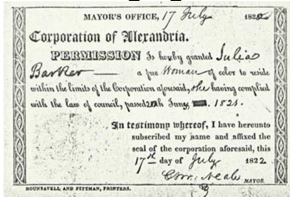 MAYOR'S OFFICE, 17 July 182
Corporation of Alexandria.
PERMISSION Is hereby granted Julia
Barker — a free Woman of color to reside
within the limits of the Corporation aforesaid, she having complied
with the law of council, passed June 1821.
In testimony whereof, I have hereunto
subscribed my name and affixed the
seal of the corporation aforesaid, this
17th day of July 1822
Neale MAYOR.
ROUNSAVELL AND PITTMAN, PRINTERS.